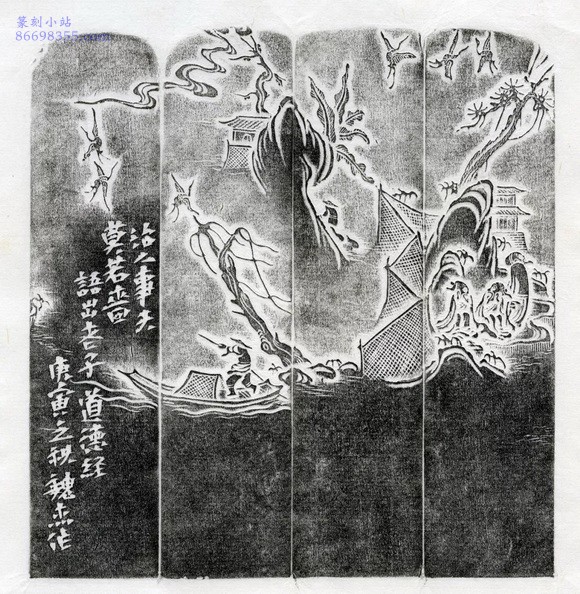 篆刻小站
86698355.com
治人事天
莫若啬
語出老子道德经
庚寅之秋魏杰作